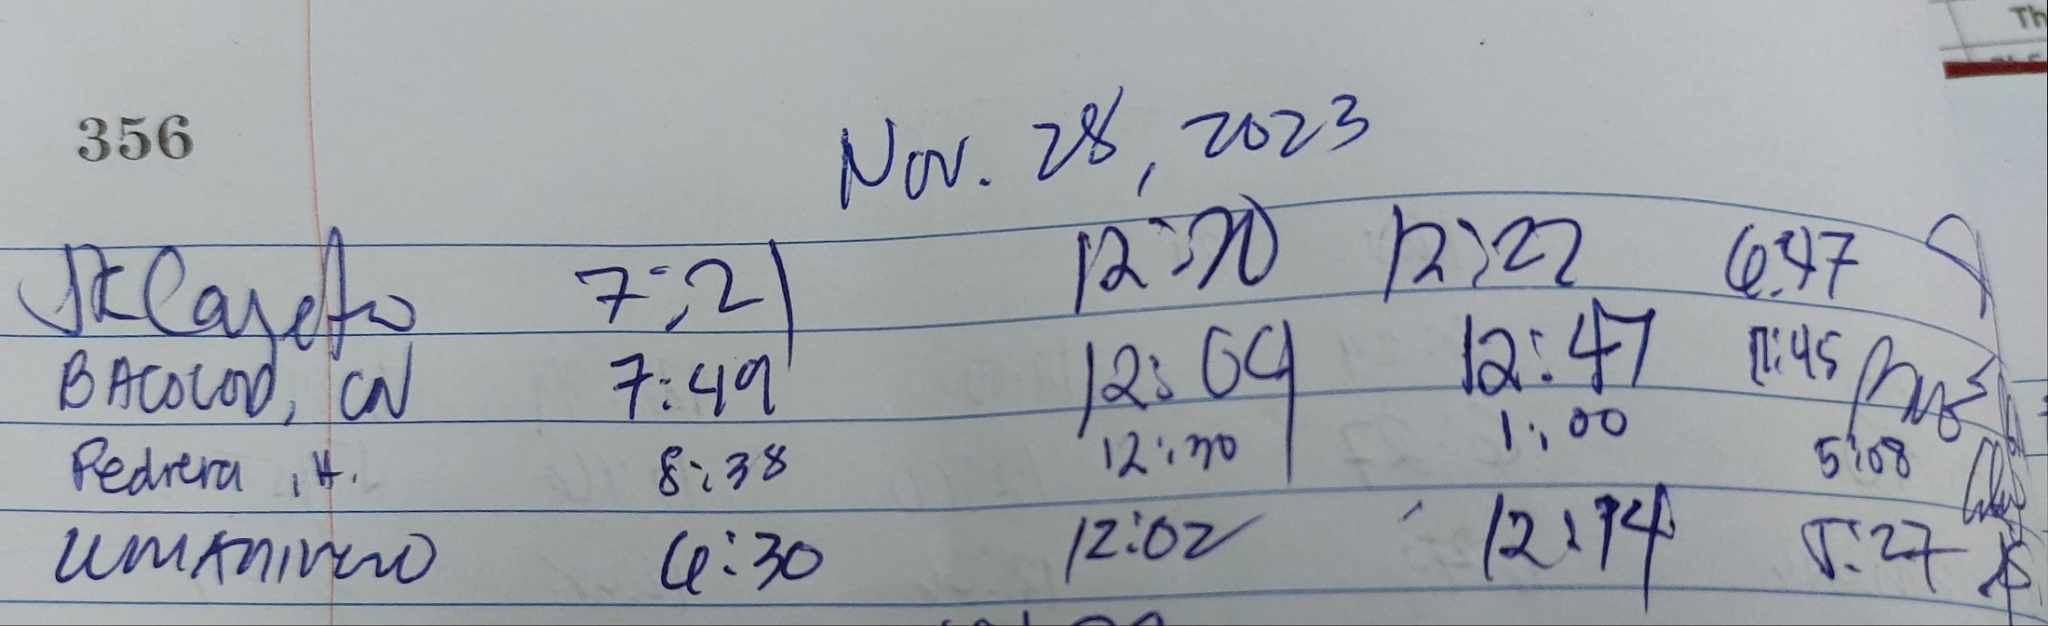 Th
356
Nov. 28, 2023
7:21 12:20 12:22 6:47
BACOLOD, CN 7:49 12:04 12:47 11:45
Pedrera, H. 8:38 12:30 1:00 5:08
6:30 12:02 12:14 5:27